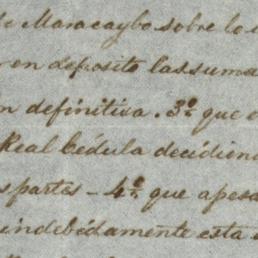 de Maracaybo sobre lo
r en deposito las suma
n definitiva. 3º que
Real Cédula decidien
s partes - 4º que apesa
indebidamente esta